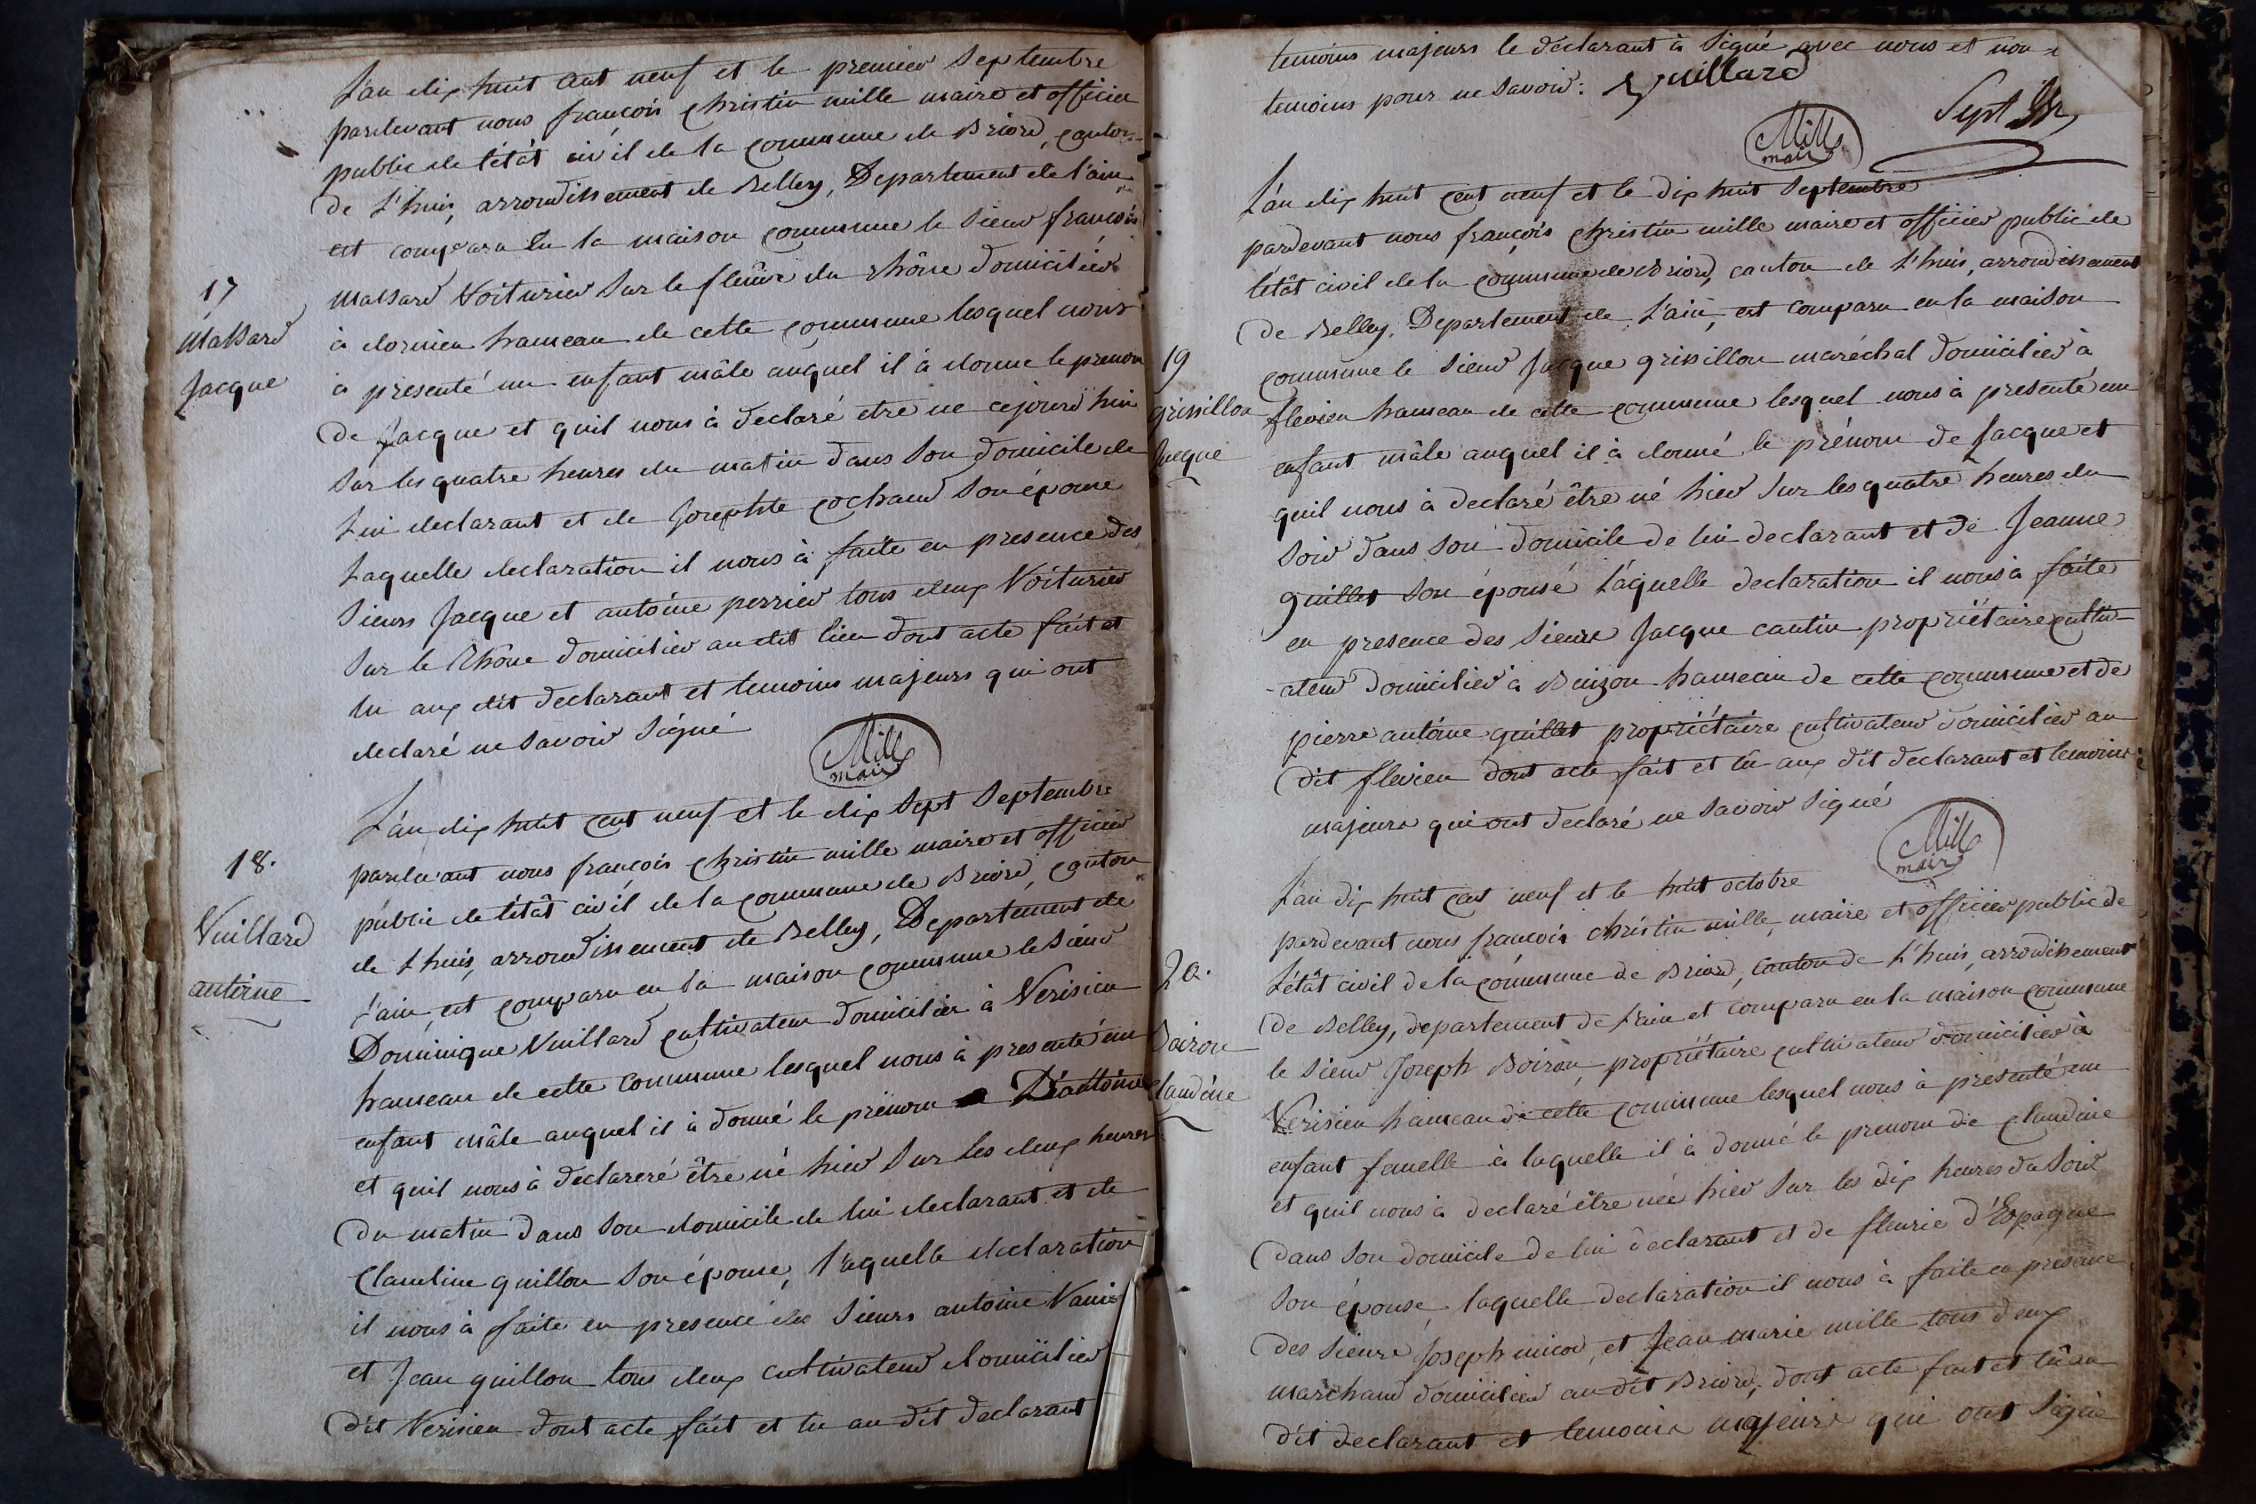 L'an dix huit cent neuf et le premier Septembre
pardevant nous françois christin mille maire et officier
public de l'étât civil de la commune de Briord, canton
de L'huis, arrondissement de Belley, Departement de l'ain
est comparu en la maison commune le Sieur françois
17
Massard
Jacque
Massard Voiturier Sur le fleûve du rhône domicilier
à dornieu hameau de cette commune lesquel nous
à presenté un enfant mâle auquel il à donne le prenom
De Jacque et quil nous à declaré etre ne cejourd'hui
Sur les quatre heures du matin dans son domicile de
Lui declarant et de Josephte cochaud Son épouse
Laquelle declaration il nous à faite en presence des
Sieurs Jacque et antoine perrier tous deux Voiturier
Sur le Rhône domicilier au dit lieu dont acte fait et
lu aux dit declarant et temoins majeurs qui ont
declaré ne Savoir Signé
Mille
maire
L'an dix huit cent neuf et le dix Sept Septembre
18.
Vuillard
antoine
pardevant nous françois christin mille maire et officier
public de l'étât civil de la commune de Briord, canton
de L'huis, arrondissement de Belley, Departement de
l'ain, est comparu en la maison commune le Sieur
Dominique Vuillard cultivateur domicilier à Verisieu
hameau de cette commune lesquel nous à presenté un
enfant mâle auquel il à donné le prénom D'antoine
et quil nous à declareré être né hier Sur les deux heures
du matin dans Son domicile de lui declarant et de
Claudine guillon Son épouse, laquelle declaration
il nous à faite en presence des Sieurs antoine Vanier
et Jean guillon tous deux cultivateur domicilier
dit Verisieu dont acte fait et lu au dit declarant
temoins majeurs le declarant à Signé avec nous et non
temoins pour ne Savoir: Vuillard
Mille
maire
Sept
L'an dix huit cent neuf et le dix huit Septembre
pardevant nous françois christin mille maire et officier public de
l'étât civil de la commune de Briord, canton de L'huis, arrondissement
de Belley, Departement de L'ain, est comparu en la maison
19
grissillon
Jacque
commune le Sieur Jacque grissillon maréchal domicilier à
flevieu hameau de cette commune lesquel nous à presenté un
enfant mâle auquel il à donné le prénom de Jacque et
quil nous à declaré être né hier Sur les quatre heures du
Soir dans Son domicile de lui declarant et de Jeanne
guillet Son épousé Laquelle declaration il nous à faite
en presence des Sieurs Jacque cantin propriétaire cultiv-
ateur domicilier à Buizon hameau de cette commune et de
pierre antoine guillet propriétaire cultivateur domicilier au
dit flevieu dont acte fait et lû aux dit declarant et temoins
majeurs qui ont declaré ne Savoir Signé
Mille
maire
L'an dix huit cent neuf et le huit octobre
pardevant nous françois christin mille, maire et officier public de
L'étât civil de la commune de Briord, canton de L'huis, arrondissement
20.
Boiron
Claudine
de Belley, departement de l'ain est comparu en la maison commune
le Sieur Joseph Boiron, propriétaire cultivateur domicilier à
Verisieu hameau de cette commune lesquel nous à presenté un
enfant femelle à laquelle il à donné le prenom de claudine
et quil nous à declaré être née hier Sur les dix heures du Soir
dans Son domicile de lui declarant et de fleurie d'Espagne
Son épouse, laquelle declaration il nous à faite en presence
des Sieurs Joseph micor, et Jean marie mille tous deux
marchand domicilier au dit Briord, dont acte fait et lû au
dit declarant et temoins majeurs qui ont Signé